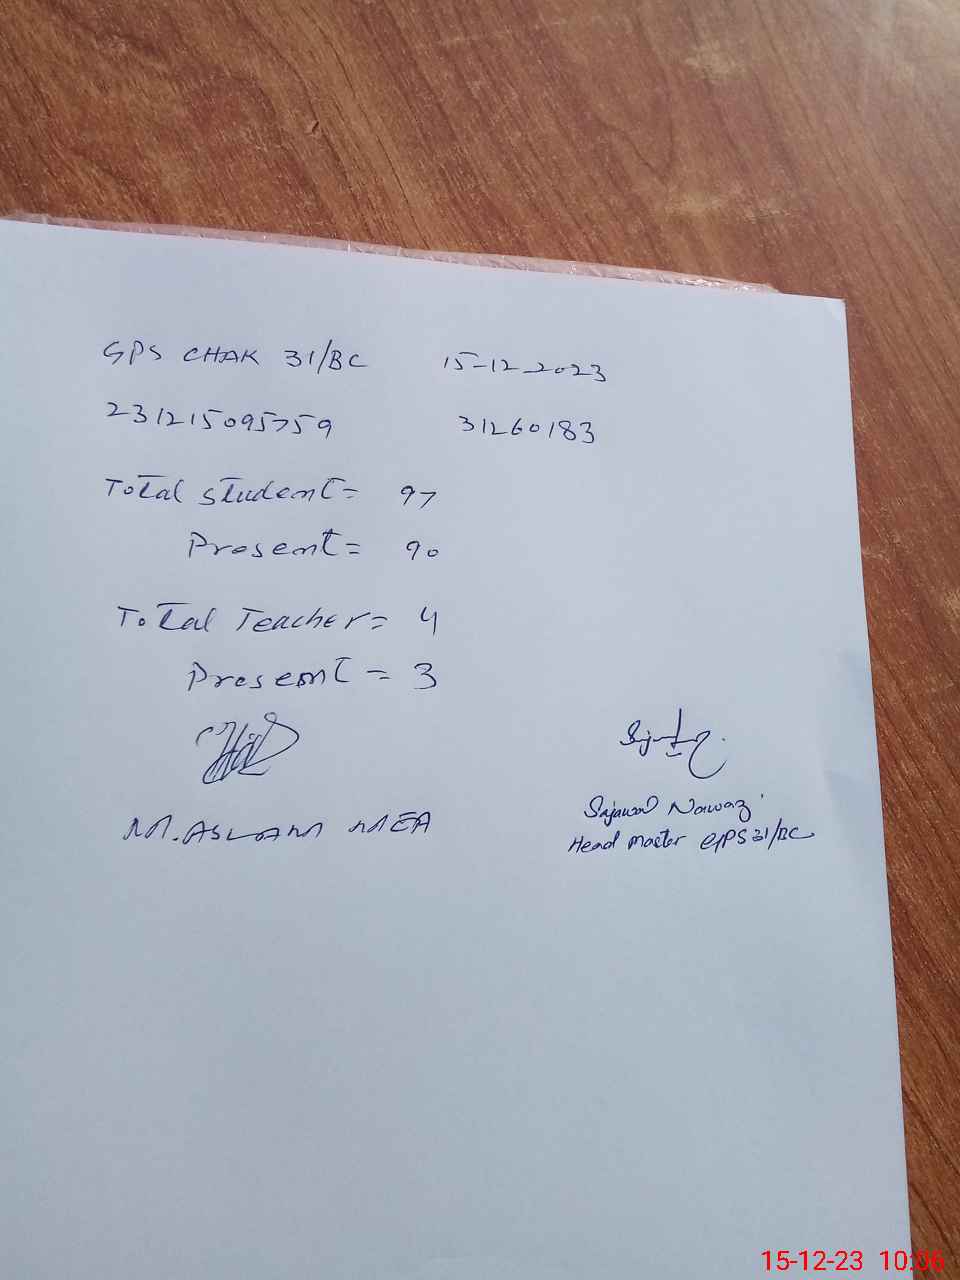 GPS CHAK 31/BC 15-12-2023
231215095759 31260183
Total student = 97
Present = 90
Total Teacher = 4
Present = 3
M. ASLAM MEA
Sajawal Nawaz
Head Master GPS 31/BC
15-12-23 10:06